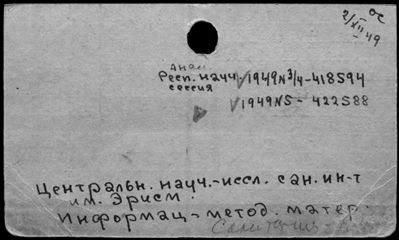 ос
2/XII 49
Респ. науч. √1949 N3/4-418594
сессия
√1949 N5 - 422588
Центральн. науч.-иссл. сан. ин-т
им. Эрисм.
Информац.-метод. матер.